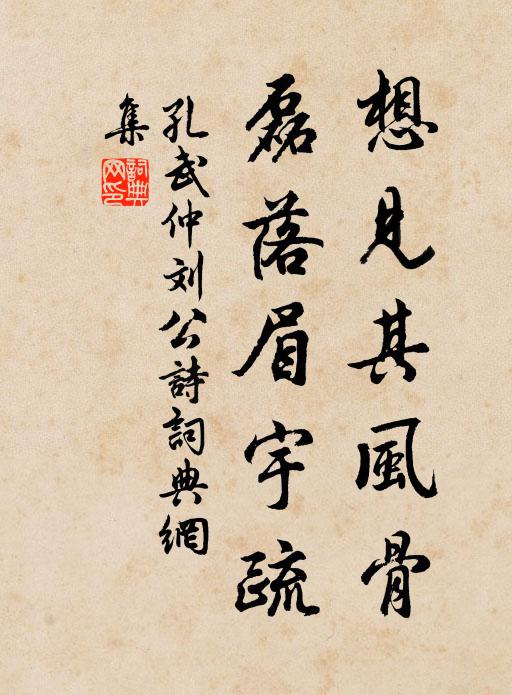 想見其風骨
磊落眉宇疏
孔武仲刘公詩詞典網
集
詞典網印